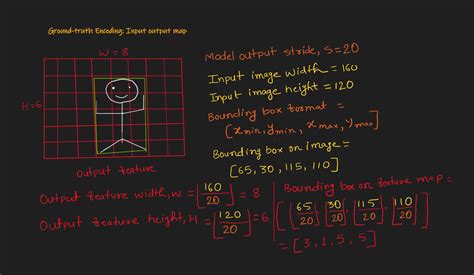 Ground-truth Encoding: Input output map
W = 8
H=6
Output feature
Model output stride, S=20
Input image width = 160
Input image height = 120
Bounding box format =
[xmin, ymin, xmax, ymax]
Bounding box on image =
[65, 30, 115, 110]
Output feature width, W = [160/20] = 8
Output feature height, H = [120/20] = 6
Bounding box on feature map =
[[65/20] [30/20], [115/20], [110/20]]
= [3, 1, 5, 5]